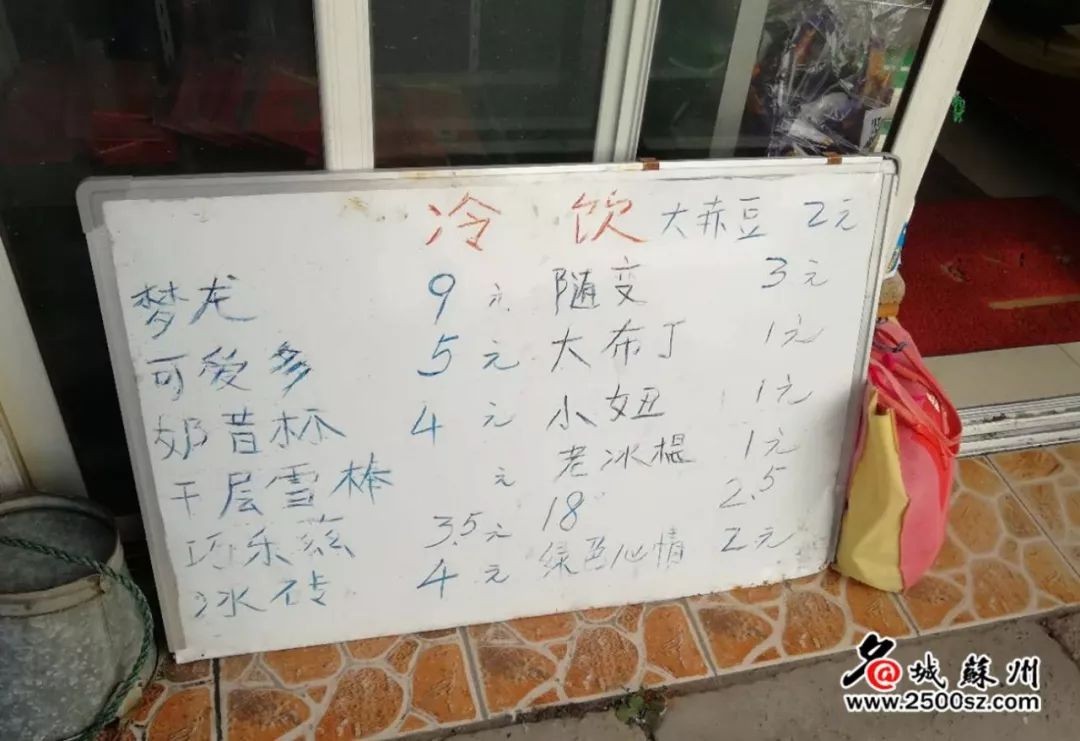 冷饮 大赤豆 2元
梦龙 9元 随变 3元
可爱多 5元 大布丁 1元
奶昔杯 4元 小妞 1元
千层雪棒 元 老冰棍 1元
巧乐兹 3.5元 18° 2.5
冰砖 4元 绿色心情 2元
名@城蘇州
www.2500sz.com